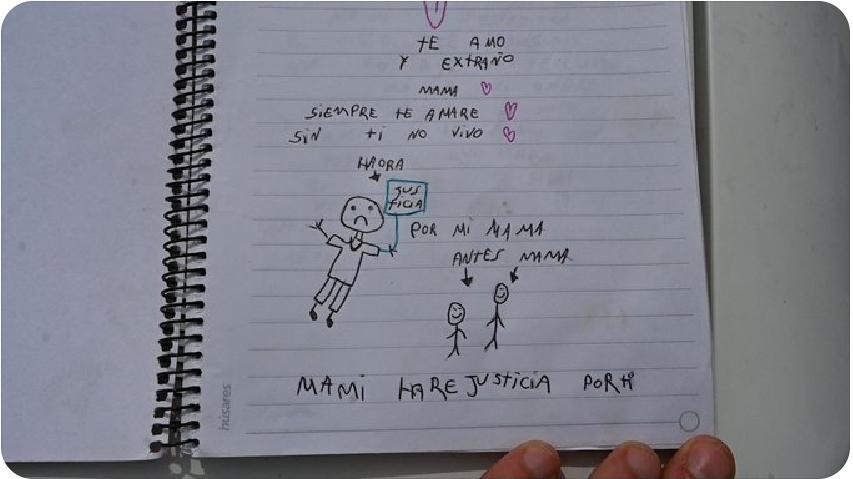 TE AMO
Y EXTRAÑO
MAMA
SIEMPRE TE AMARE
SIN TI NO VIVO
HAORA
JUS
TICIA
POR MI MAMA
ANTES MAMA
MAMI HARE JUSTICIA POR TI
húsares